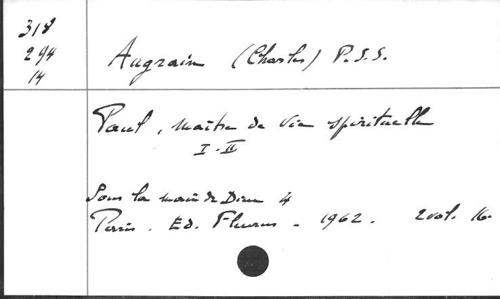 318
294
14
Augrain (Charles) P.S.S.
Paul, maître de vie spirituelle
I-II
Sous la main de Dieu 4
Paris. Ed. Fleurus - 1962. 2 vol. 16